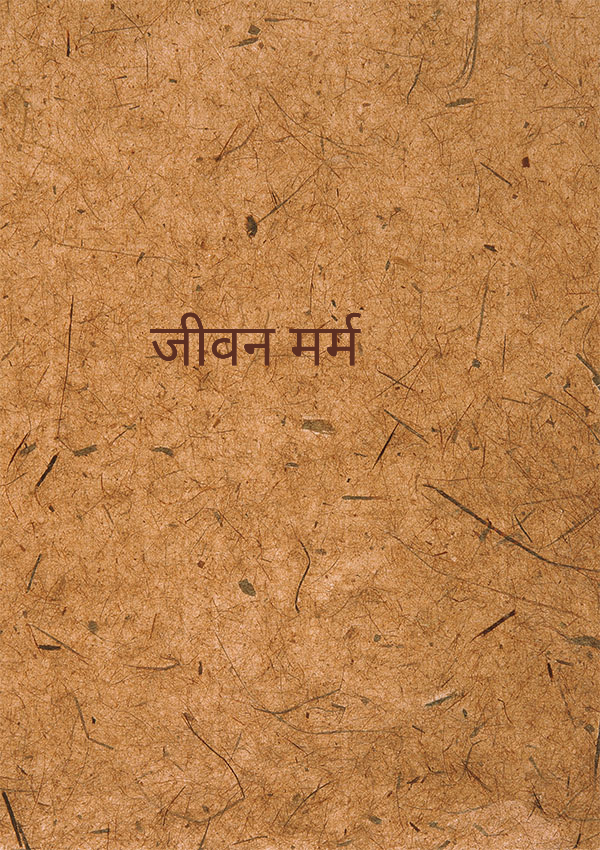 जीवन मर्म